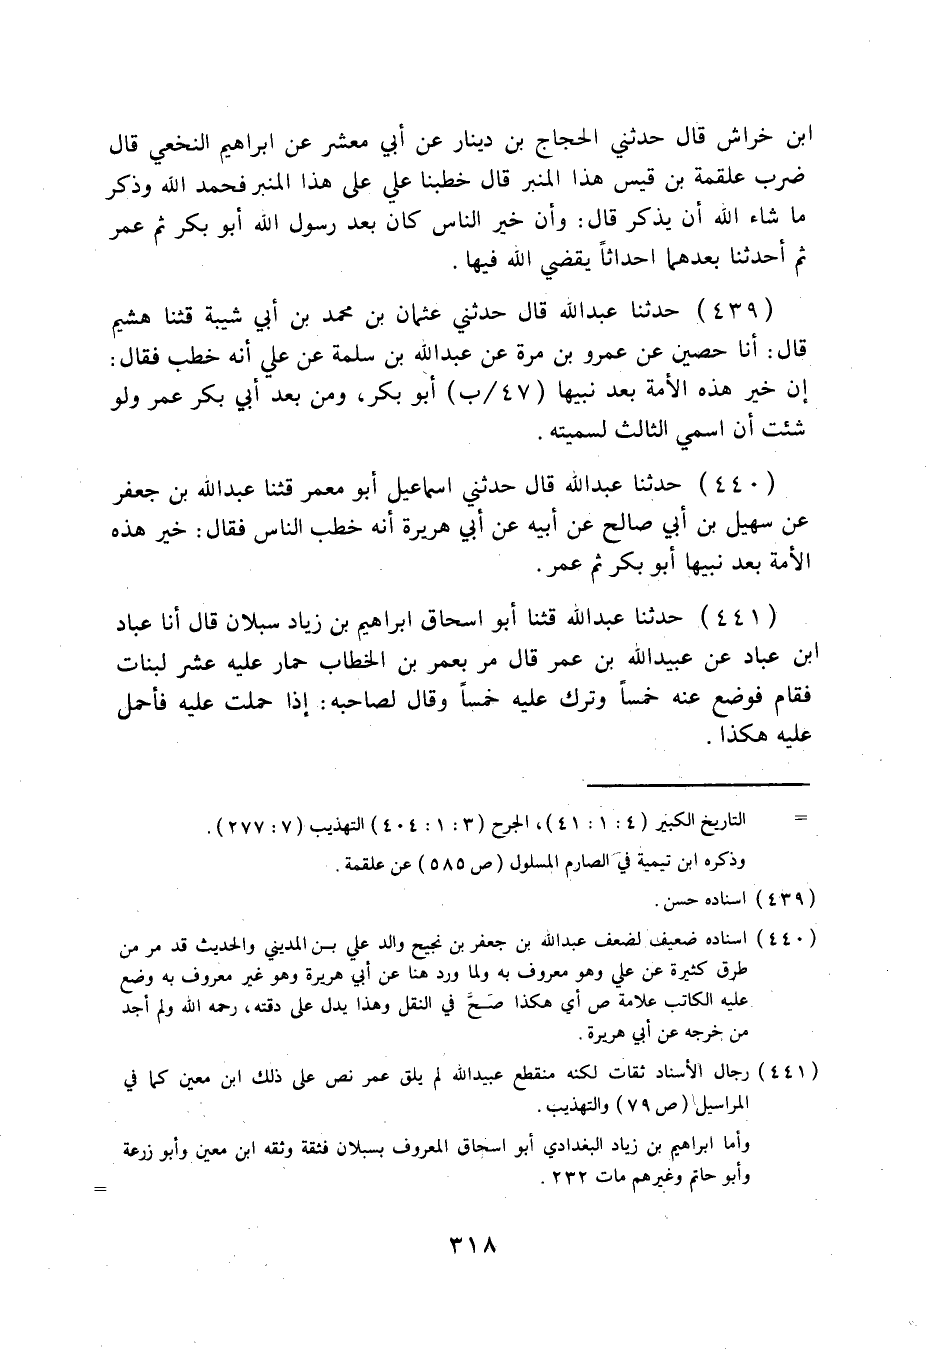 ابن خراش قال حدثني الحجاج بن دينار عن أبي معشر عن ابراهيم النخعي قال
ضرب علقمة بن قيس هذا المنبر قال خطبنا علي على هذا المنبر فحمد الله وذكر
ما شاء الله أن يذكر قال: وأن خير الناس كان بعد رسول الله أبو بكر ثم عمر
ثم أحدثنا بعدهما احداثاً يقضي الله فيها.
(٤٣٩) حدثنا عبدالله قال حدثني عثمان بن محمد بن أبي شيبة قثنا هشيم
قال: أنا حصين عن عمرو بن مرة عن عبدالله بن سلمة عن علي أنه خطب فقال:
إن خير هذه الأمة بعد نبيها (٤٧/ب) أبو بكر، ومن بعد أبي بكر عمر ولو
شئت أن اسمي الثالث لسميته.
(٤٤٠) حدثنا عبدالله قال حدثني اسماعيل أبو معمر قثنا عبدالله بن جعفر
عن سهيل بن أبي صالح عن أبيه عن أبي هريرة أنه خطب الناس فقال: خير هذه
الأمة بعد نبيها أبو بكر ثم عمر.
(٤٤١) حدثنا عبدالله قثنا أبو اسحاق ابراهيم بن زياد سبلان قال أنا عباد
ابن عباد عن عبيدالله بن عمر قال مر بعمر بن الخطاب حمار عليه عشر لبنات
فقام فوضع عنه خمساً وترك عليه خمساً وقال لصاحبه: إذا حملت عليه فأحمل
عليه هكذا.
= التاريخ الكبير (٤: ١: ٤١)، الجرح (٣: ١: ٤٠٤) التهذيب (٧: ٢٧٧).
وذكره ابن تيمية في الصارم المسلول (ص ٥٨٥) عن علقمة.
(٤٣٩) اسناده حسن.
(٤٤٠) اسناده ضعيف لضعف عبدالله بن جعفر بن نجيح والد علي بن المديني والحديث قد مر من
طرق كثيرة عن علي وهو معروف به ولما ورد هنا عن أبي هريرة وهو غير معروف به وضع
عليه الكاتب علامة ص أي هكذا صَحَّ في النقل وهذا يدل على دقته، رحمه الله ولم أجد
من خرجه عن أبي هريرة.
(٤٤١) رجال الأسناد ثقات لكنه منقطع عبيدالله لم يلق عمر نص على ذلك ابن معين كما في
المراسيل (ص ٧٩) والتهذيب.
وأما ابراهيم بن زياد البغدادي أبو اسحاق المعروف بسبلان فثقة وثقه ابن معين وأبو زرعة
وأبو حاتم وغيرهم مات ٢٣٢.
=
٣١٨